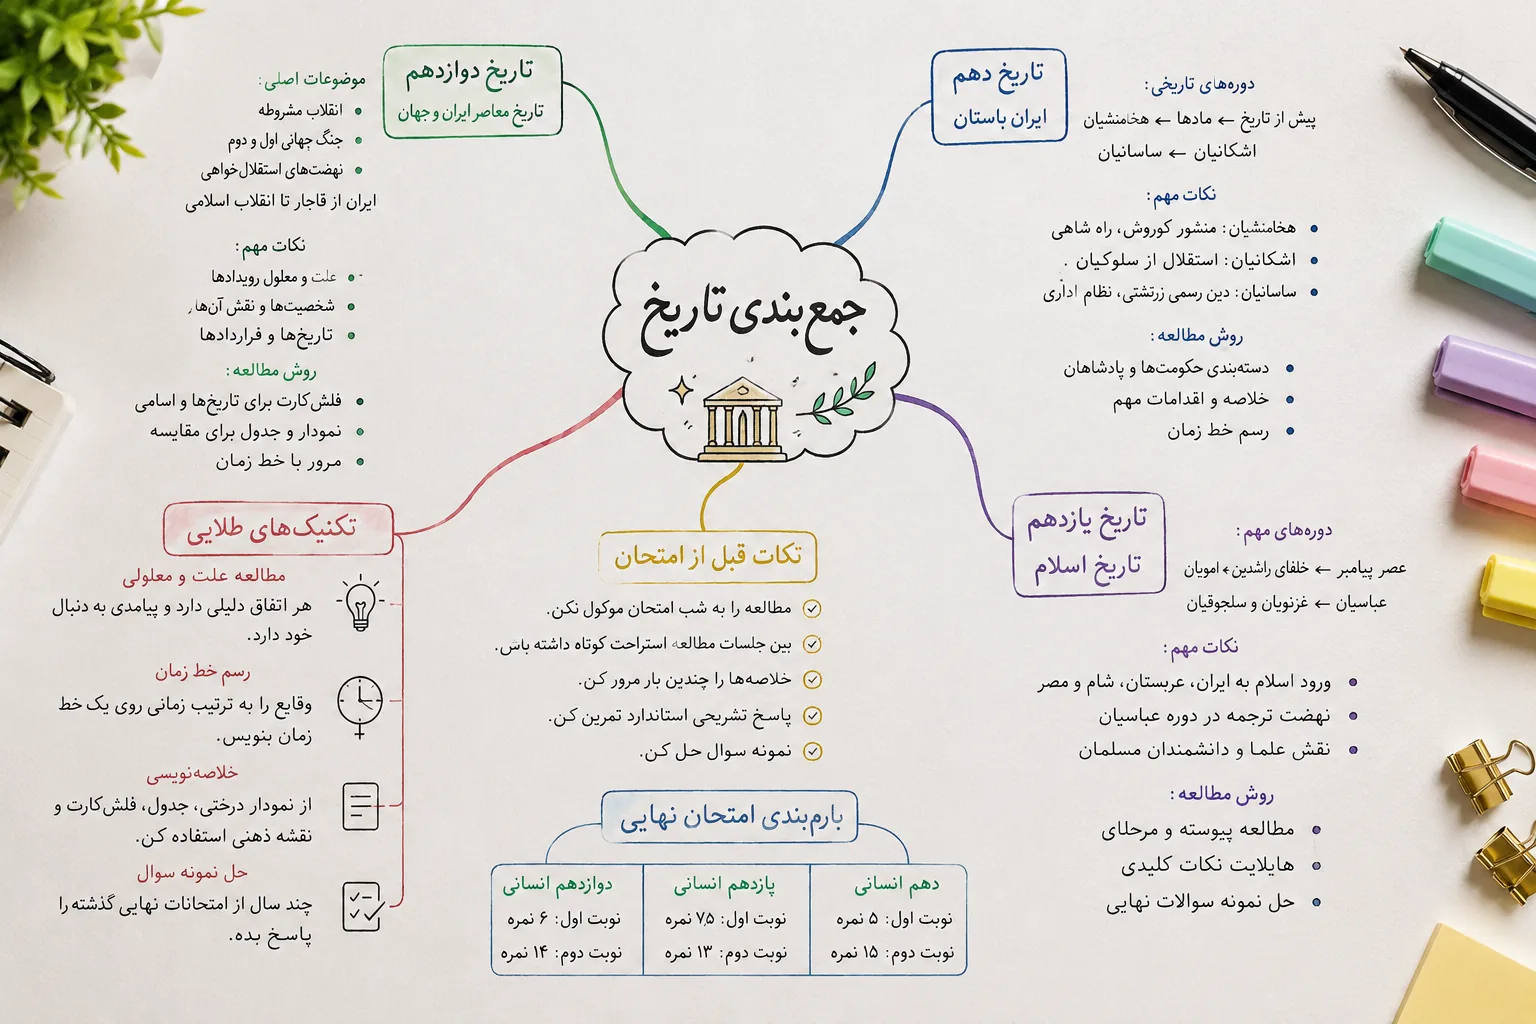 جمع‌بندی تاریخ
تاریخ دهم
ایران باستان
دوره‌های تاریخی:
پیش از تاریخ ← مادها ← هخامنشیان
اشکانیان ← ساسانیان
نکات مهم:
هخامنشیان: منشور کوروش، راه شاهی
اشکانیان: استقلال از سلوکیان .
ساسانیان: دین رسمی زرتشتی، نظام اداری
روش مطالعه:
دسته‌بندی حکومت‌ها و پادشاهان
خلاصه و اقدامات مهم
رسم خط زمان
تاریخ یازدهم
تاریخ اسلام
دوره‌های مهم:
عصر پیامبر ← خلفای راشدین ← امویان
عباسیان ← غزنویان و سلجوقیان
نکات مهم:
ورود اسلام به ایران، عربستان، شام و مصر
نهضت ترجمه در دوره عباسیان
نقش علما و دانشمندان مسلمان
روش مطالعه:
مطالعه پیوسته و مرحلای
هایلایت نکات کلیدی
حل نمونه سوالات نهایی
تاریخ دوازدهم
تاریخ معاصر ایران و جهان
موضوعات اصلی:
انقلاب مشروطه
جنگ جهانی اول و دوم
نهضت‌های استقلال‌خواهی
ایران از قاجار تا انقلاب اسلامی
نکات مهم:
علت و معلول رویدادها
شخصیت‌ها و نقش آن‌ها
تاریخ‌ها و قراردادها
روش مطالعه:
فلش‌کارت برای تاریخ‌ها و اسامی
نمودار و جدول برای مقایسه
مرور با خط زمان
تکنیک‌های طلایی
مطالعه علت و معلولی
هر اتفاق دلیلی دارد و پیامدی به دنبال
خود دارد.
رسم خط زمان
وقایع را به ترتیب زمانی روی یک خط
زمان بنویس.
خلاصه‌نویسی
از نمودار درختی، جدول، فلش‌کارت و
نقشه ذهنی استفاده کن.
حل نمونه سوال
چند سال از امتحانات نهایی گذشته را
پاسخ بده.
تکات قبل از امتحان
مطالعه را به شب امتحان موکول نکن.
بین جلسات مطالعه استراحت کوتاه داشته باش.
خلاصه‌ها را چندین بار مرور کن.
پاسخ تشریحی استاندارد تمرین کن.
نمونه سوال حل کن.
بارم‌بندی امتحان نهایی
دهم انسانی
نوبت اول: ۵ نمره
نوبت دوم: ۱۵ نمره
یازدهم انسانی
نوبت اول: ۷٫۵ نمره
نوبت دوم: ۱۳ نمره
دوازدهم انسانی
نوبت اول: ۶ نمره
نوبت دوم: ۱۴ نمره